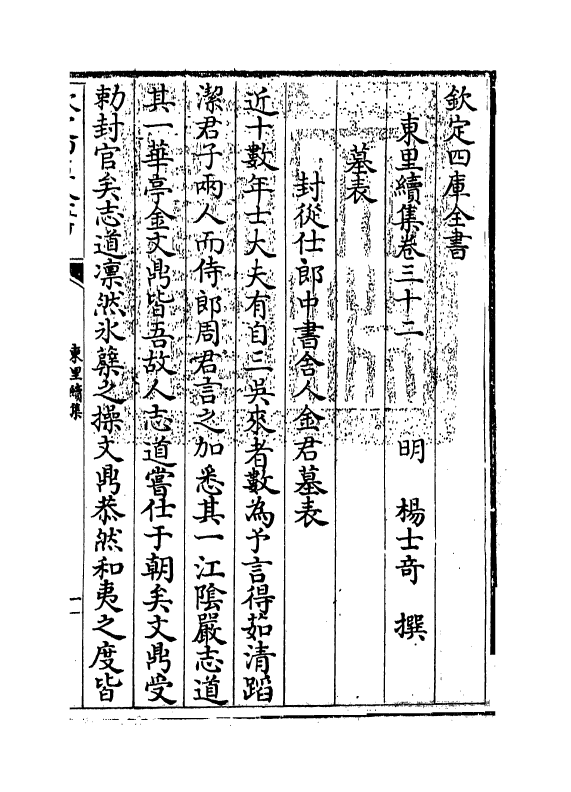 欽定四庫全書
東里續集卷三十二
明 楊士奇 撰
墓表
封從仕郎中書舍人金君墓表
近十數年士大夫有自三吳來者數為予言得茹清蹈
潔君子兩人而侍郎周君言之加悉其一江陰嚴志道
其一華亭金文鼎皆吾故人志道嘗仕于朝矣文鼎受
勅封官矣志道凛然氷蘖之操文鼎恭然和夷之度皆
東里續集